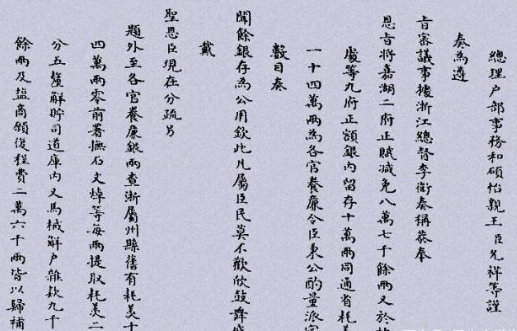 總理户部事務和碩怡親王臣允祥等謹
奏為遵
旨審議事據浙江總督李衛奏稱恭奉
恩旨將嘉湖二府正賦減免八萬七千餘兩又於
嚴等九府正額銀內留存十萬兩同通省耗
一十四萬兩為各官養廉令臣秉公酌量派
數目奏
聞餘銀存為公用欽此凡屬臣民莫不歡欣鼓舞感
戴
聖恩臣現在分疏另
題外至各官養廉銀兩查浙屬州縣舊有耗羨十
四萬兩零前署撫石文焯等每兩提取耗羨二
分五釐解貯司道庫內又馬械解户雜款九千
餘兩及鹽商願復程費二萬六千兩皆以歸補